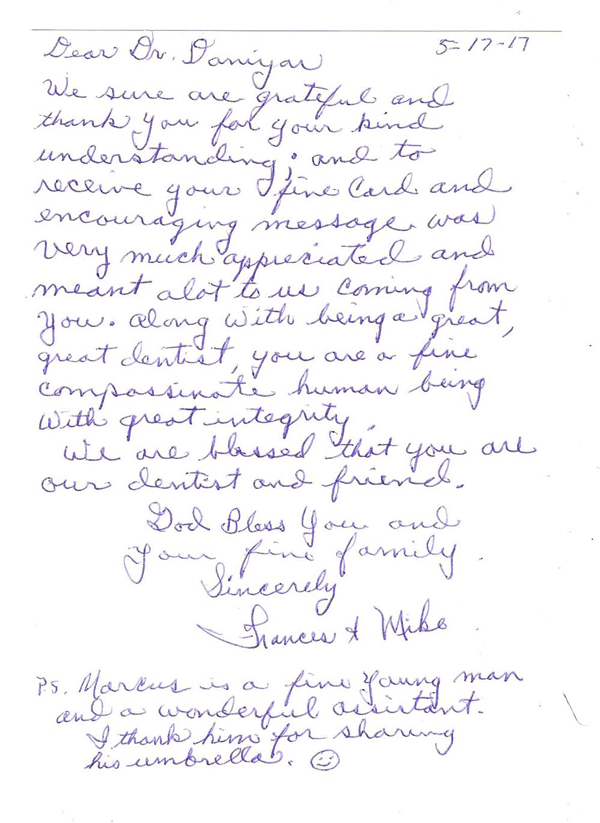 Dear Dr. Daniyar 5-17-17
We sure are grateful and
thank you for your kind
understanding; and to
receive your fine Card and
encouraging message was
very much appreciated and
meant alot to us coming from
you. Along with being a great,
great dentist, you are a fine
compassinate human being
with great integrity.
We are blessed that you are
our dentist and friend.
God Bless You and
your fine family.
Sincerely
Frances & Mike
P.S. Marcus is a fine young man
and a wonderful assistant.
I thank him for sharing
his umbrella. ☺